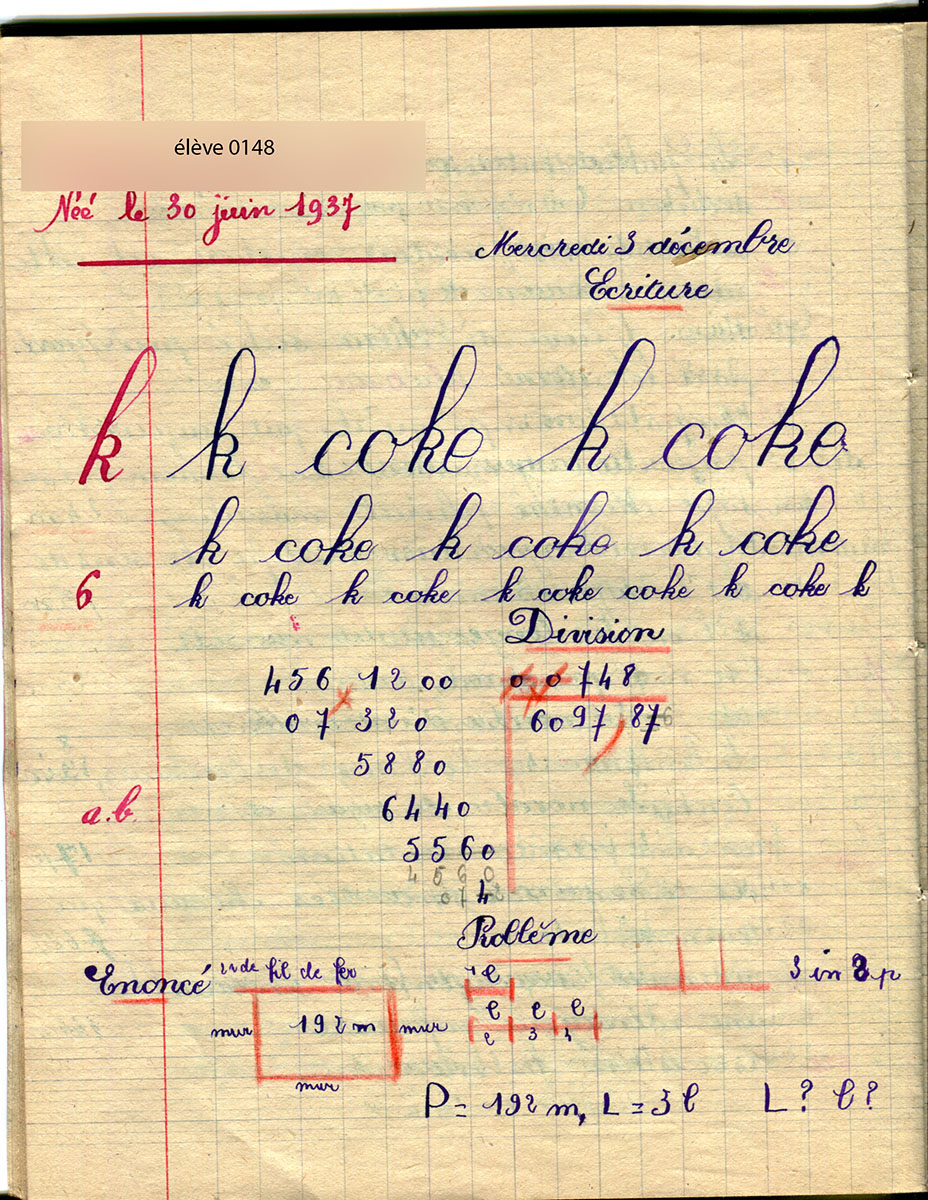 élève 0148
Néé le 30 juin 1937
Mercredi 3 décembre
Ecriture
k k coke k coke
k coke k coke k coke
6 k coke k coke k coke coke k coke k
Division
456 12 00 0 0 748
07 320 6097,87
5880
6440
a.b.
5560
4560
4
Problème
Enoncé de fil de fer l 3 in 2 p
mur 192 m mur l l l
2 3 4
mur
P = 192 m, L = 3 l L? l?